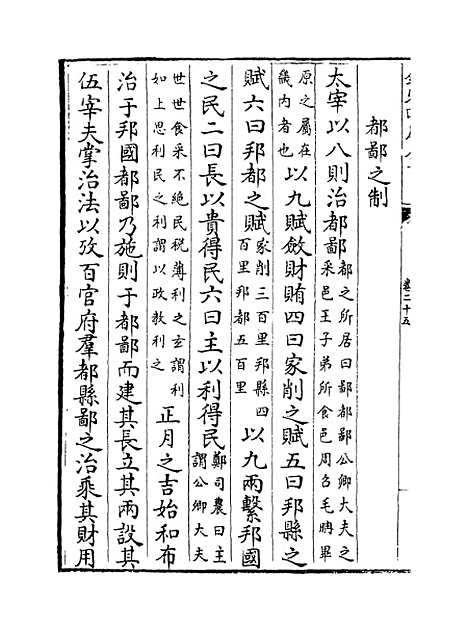 卷二十五
都鄙之制
太宰以八則治都鄙都之所居曰鄙都鄙公卿大夫之
采邑王子弟所食邑周召毛聃畢
原之屬在
畿内者也以九賦斂財賄四曰家削之賦五曰邦縣之
賦六曰邦都之賦家削三百里邦縣四
百里邦都五百里以九兩繫邦國
之民二曰長以貴得民六曰主以利得民鄭司農曰主
謂公卿大夫
世世食采不絶民税薄利之玄謂利
如上思利民之利謂以政教利之正月之吉始和布
治于邦國都鄙乃施則于都鄙而建其長立其兩設其
伍宰夫掌治法以攷百官府羣都縣鄙之治乘其財用